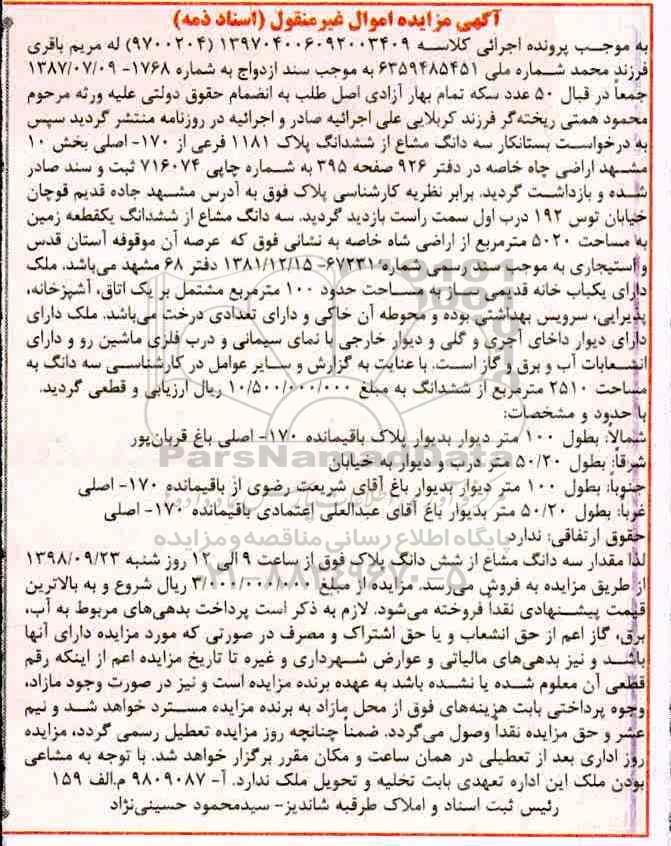 آگهی مزایده اموال غیرمنقول (اسناد ذمه)
به موجب پرونده اجرائی کلاسه ۱۳۹۷۰۴۰۰۶۰۹۲۰۰۳۴۰۹ (۹۷۰۰۲۰۴) له مریم باقری
فرزند محمد شماره ملی ۶۳۵۹۴۸۵۴۵۱ به موجب سند ازدواج به شماره ۱۷۶۸- ۱۳۸۷/۰۷/۰۹
جمعاً در قبال ۵۰ عدد سکه تمام بهار آزادی اصل طلب به انضمام حقوق دولتی علیه ورثه مرحوم
محمود همتی ریخته‌گر فرزند کربلایی علی اجرائیه صادر و اجرائیه در روزنامه منتشر گردید سپس
به درخواست بستانکار سه دانگ مشاع از ششدانگ پلاک ۱۱۸۱ فرعی از ۱۷۰- اصلی بخش ۱۰
مشهد اراضی چاه خاصه در دفتر ۹۲۶ صفحه ۳۹۵ به شماره چاپی ۷۱۶۰۷۴ ثبت و سند صادر
شده و بازداشت گردید. برابر نظریه کارشناسی پلاک فوق به آدرس مشهد جاده قدیم قوچان
خیابان توس ۱۹۲ درب اول سمت راست بازدید گردید. سه دانگ مشاع از ششدانگ یکقطعه زمین
به مساحت ۵۰۲۰ مترمربع از اراضی شاه خاصه به نشانی فوق که عرصه آن موقوفه آستان قدس
و استیجاری به موجب سند رسمی شماره ۶۷۲۳۱- ۱۳۸۱/۱۲/۱۵ دفتر ۶۸ مشهد می‌باشد. ملک
دارای یکباب خانه قدیمی ساز به مساحت حدود ۱۰۰ مترمربع مشتمل بر یک اتاق، آشپزخانه،
پذیرایی، سرویس بهداشتی بوده و محوطه آن خاکی و دارای تعدادی درخت می‌باشد. ملک دارای
دارای دیوار داخای آجری و گلی و دیوار خارجی با نمای سیمانی و درب فلزی ماشین رو و دارای
انشعابات آب و برق و گاز است. با عنایت به گزارش و سایر عوامل در کارشناسی سه دانگ به
مساحت ۲۵۱۰ مترمربع از ششدانگ به مبلغ ۱۰/۵۰۰/۰۰۰/۰۰۰ ریال ارزیابی و قطعی گردید.
با حدود و مشخصات:
شمالاً: بطول ۱۰۰ متر دیوار بدیوار پلاک باقیمانده ۱۷۰- اصلی باغ قربان‌پور
شرقاً: بطول ۵۰/۲۰ متر درب و دیوار به خیابان
جنوباً: بطول ۱۰۰ متر دیوار بدیوار باغ آقای شریعت رضوی از باقیمانده ۱۷۰- اصلی
غرباً: بطول ۵۰/۲۰ متر بدیوار باغ آقای عبدالعلی اعتمادی باقیمانده ۱۷۰- اصلی
حقوق ارتفاقی: ندارد
لذا مقدار سه دانگ مشاع از شش دانگ پلاک فوق از ساعت ۹ الی ۱۲ روز شنبه ۱۳۹۸/۰۹/۲۳
از طریق مزایده به فروش می‌رسد. مزایده از مبلغ ۳/۰۰۰/۰۰۰/۰۰۰ ریال شروع و به بالاترین
قیمت پیشنهادی نقداً فروخته می‌شود. لازم به ذکر است پرداخت بدهی‌های مربوط به آب،
برق، گاز اعم از حق انشعاب و یا حق اشتراک و مصرف در صورتی که مورد مزایده دارای آنها
باشد و نیز بدهی‌های مالیاتی و عوارض شهرداری و غیره تا تاریخ مزایده اعم از اینکه رقم
قطعی آن معلوم شده یا نشده باشد به عهده برنده مزایده است و نیز در صورت وجود مازاد،
وجوه پرداختی بابت هزینه‌های فوق از محل مازاد به برنده مزایده مسترد خواهد شد و نیم
عشر و حق مزایده نقداً وصول می‌گردد. ضمناً چنانچه روز مزایده تعطیل رسمی گردد، مزایده
روز اداری بعد از تعطیلی در همان ساعت و مکان مقرر برگزار خواهد شد. با توجه به مشاعی
بودن ملک این اداره تعهدی بابت تخلیه و تحویل ملک ندارد. آ- ۹۸۰۹۰۸۷ م.الف ۱۵۹
رئیس ثبت اسناد و املاک طرقبه شاندیز- سیدمحمود حسینی‌نژاد
ParsNamadData
پایگاه اطلاع رسانی مناقصه و مزایده